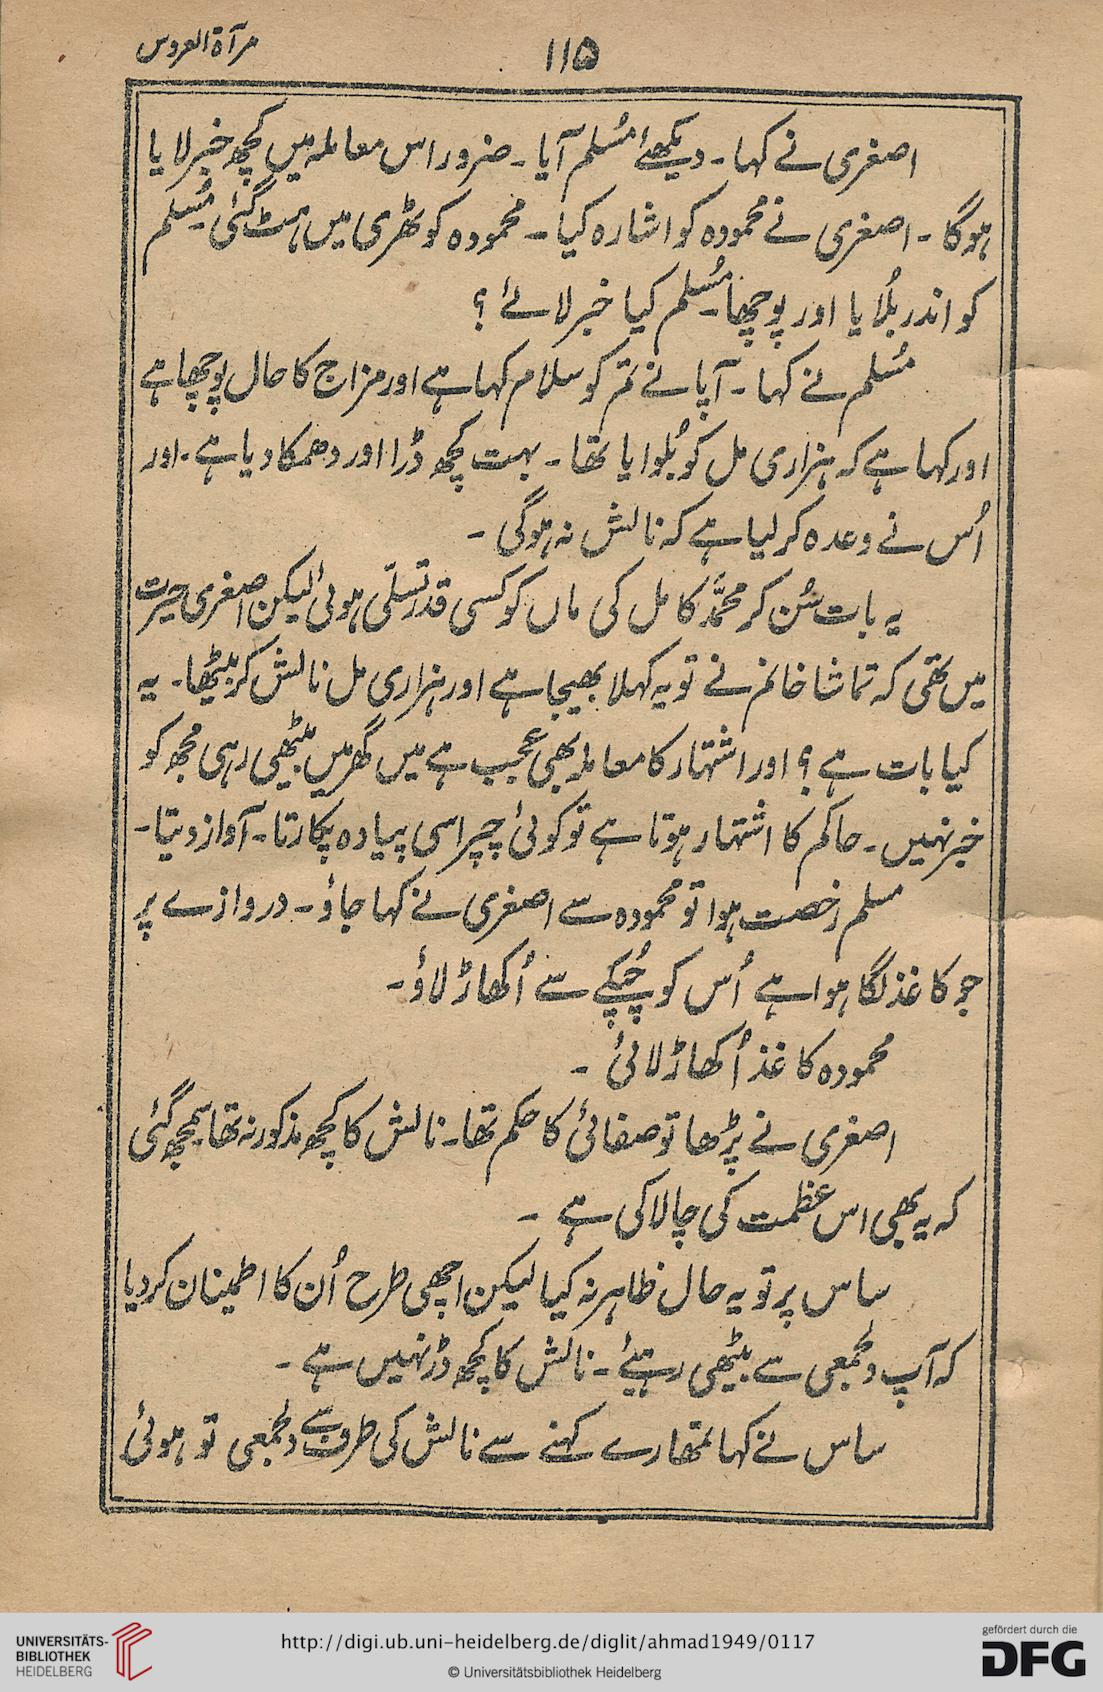 مرآۃ العروس
۱۱۵
اصغری نے کہا۔ دیکھئے مُسلم آیا۔ ضرور اس معاملہ میں کچھ خبر لایا
ہوگا۔ اصغری نے محمودہ کو اشارہ کیا۔ محمودہ کوٹھری میں ہٹ گئی مُسلم
کو اندر بُلایا اور پوچھا۔ مُسلم کیا خبر لائے؟
مُسلم نے کہا۔ آپا نے تم کو سلام کہا ہے اور مزاج کا حال پوچھا ہے
اور کہا ہے کہ ہزاری مل کو بُلوایا تھا۔ بہت کچھ ڈرا اور دھمکا دیا ہے۔ اور
اُس نے وعدہ کر لیا ہے کہ نالش نہ ہوگی۔
یہ بات سُن کر محمّد کامل کی ماں کو کسی قدر تسلّی ہوئی لیکن اصغری حیرت
میں تھی کہ تماشا خانم نے تو یہ کہلا بھیجا ہے اور ہزاری مل نالش کر بیٹھا۔ یہ
کیا بات ہے؟ اور اشتہار کا معاملہ بھی عجیب ہے میں گھر میں بیٹھی رہی مجھ کو
خبر نہیں۔ حاکم کا اشتہار ہوتا ہے تو کوئی چپراسی پیادہ پکارتا۔ آواز دیتا۔
مسلم رخصت ہوا تو محمودہ سے اصغری نے کہا جاؤ۔ دروازے پر
جو کاغذ لگا ہوا ہے اُس کو چُپکے سے اُکھاڑ لاؤ۔
محمودہ کاغذ اُکھاڑ لائی۔
اصغری نے پڑھا تو صفائی کا حکم تھا۔ نالش کا کچھ مذکور نہ تھا سمجھ گئی
کہ یہ بھی اس عظمت کی چالاکی ہے۔
ساس پر تو یہ حال ظاہر نہ کیا لیکن اچھی طرح اُن کا اطمینان کر دیا
کہ آپ دلجمعی سے بیٹھی رہیئے۔ نالش کا کچھ ڈر نہیں ہے۔
ساس نے کہا تمھارے کہنے سے نالش کی طرف سے دلجمعی تو ہوئی
UNIVERSITÄTS-
BIBLIOTHEK
HEIDELBERG
http://digi.ub.uni-heidelberg.de/diglit/ahmad1949/0117
© Universitätsbibliothek Heidelberg
gefördert durch die
DFG